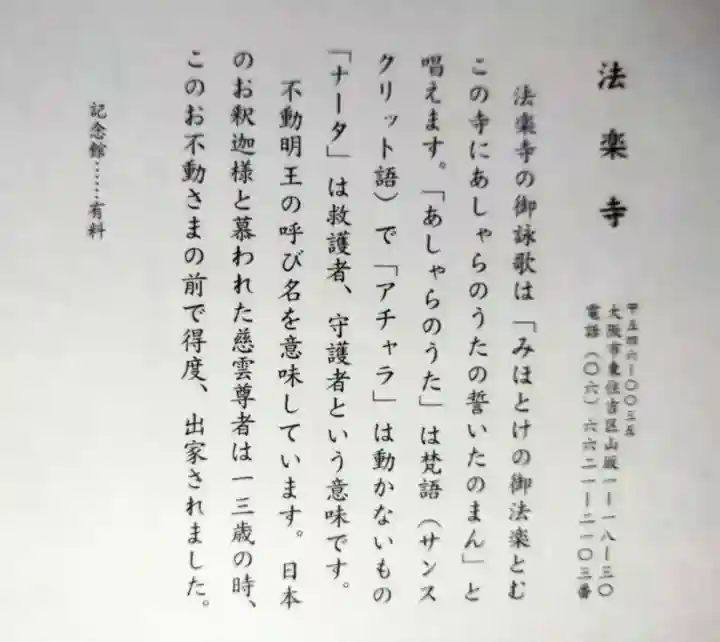 法楽寺
〒五四六ー〇〇三五
大阪市東住吉区山坂一ー一八ー三〇
電話(〇六)六六二一ー二一〇三番
法楽寺の御詠歌は「みほとけの御法楽とむ
この寺にあしゃらのうたの誓いたのまん」と
唱えます。「あしゃらのうた」は梵語(サンス
クリット語)で「アチャラ」は動かないもの
「ナータ」は救護者、守護者という意味です。
不動明王の呼び名を意味しています。日本
のお釈迦様と慕われた慈雲尊者は一三歳の時、
このお不動さまの前で得度、出家されました。
記念館……有料